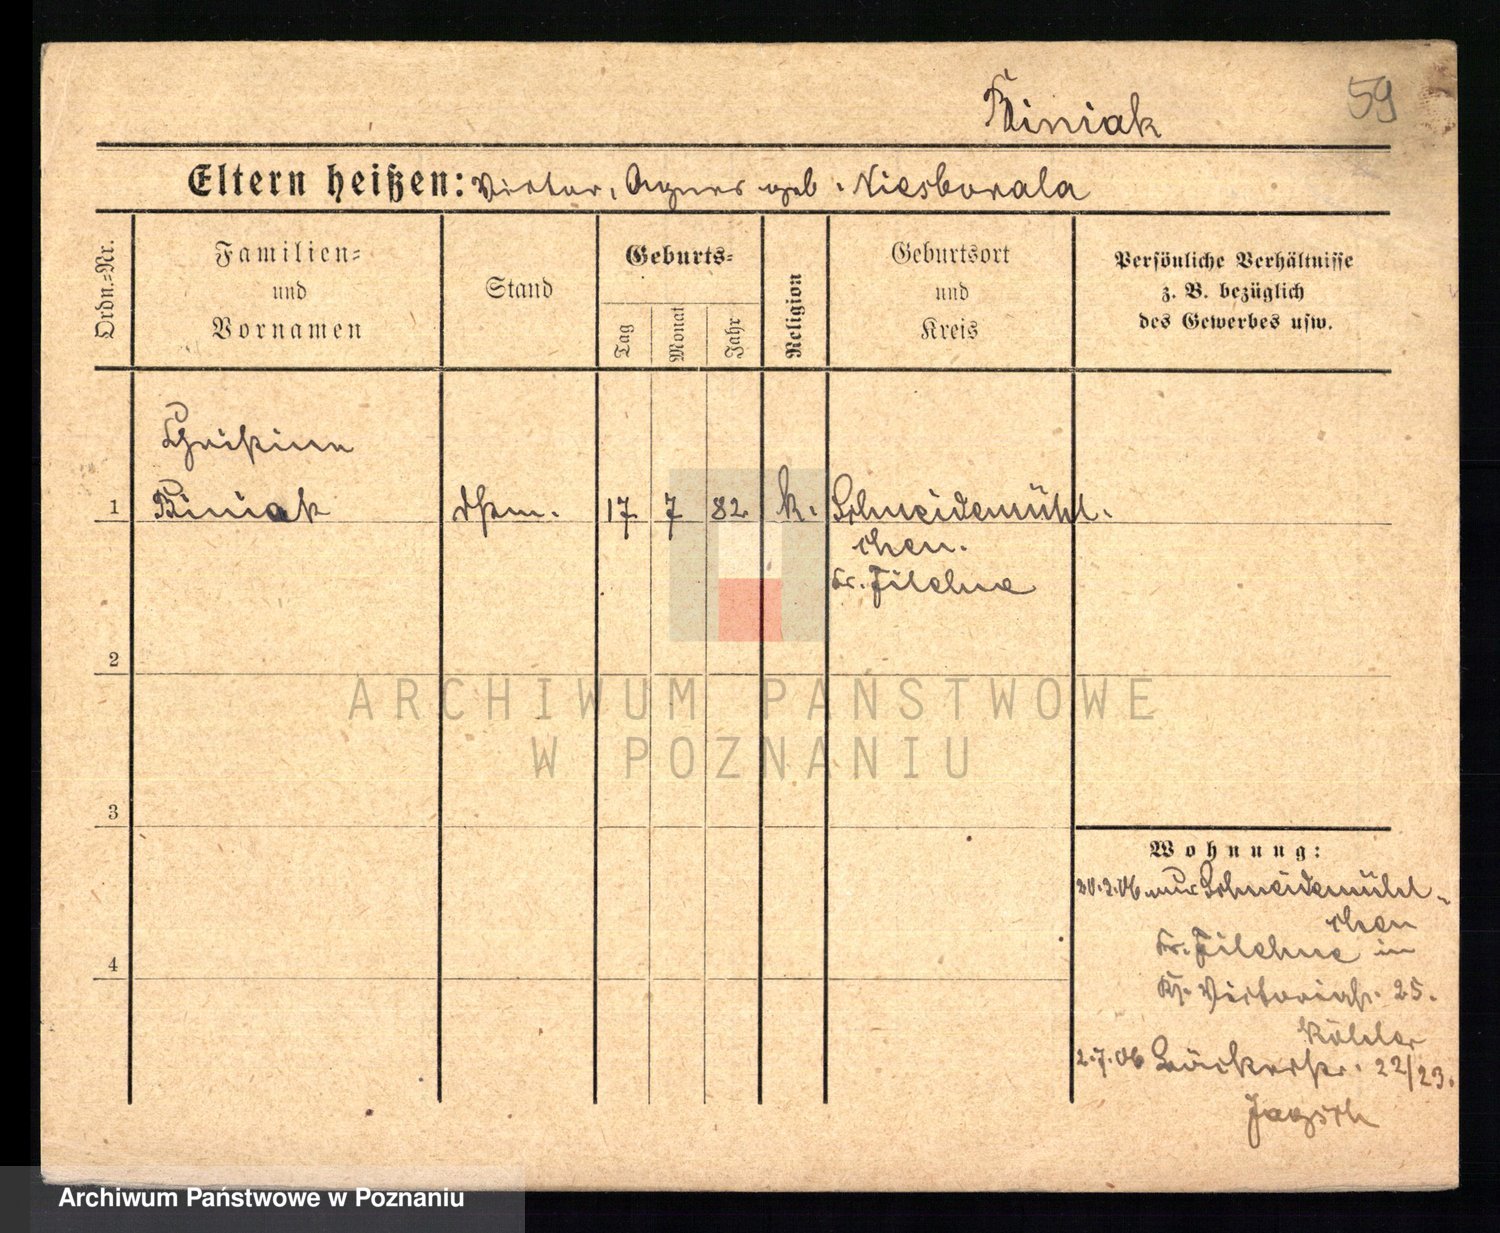 59
Biniak
Eltern heißen: Victor, Agnes geb. Niesborala
Ordn.-Nr.
Familien-
und
Vornamen
Stand
Geburts-
Tag
Monat
Jahr
Religion
Geburtsort
und
Kreis
Persönliche Verhältnisse
z. B. bezüglich
des Gewerbes usw.
Christine
1 Biniak Dstm. 17 7 82 k. Schneidemühl-
chen.
Kr. Filehne
2
3
4
Wohnung:
20.2.06 aus Schneidemühl-
chen
Kr. Filehne in
Victoriast. 25.
Köhler
2.7.06 Bäckerstr. 22/23.
ARCHIWUM PAŃSTWOWE
W POZNANIU
Archiwum Państwowe w Poznaniu